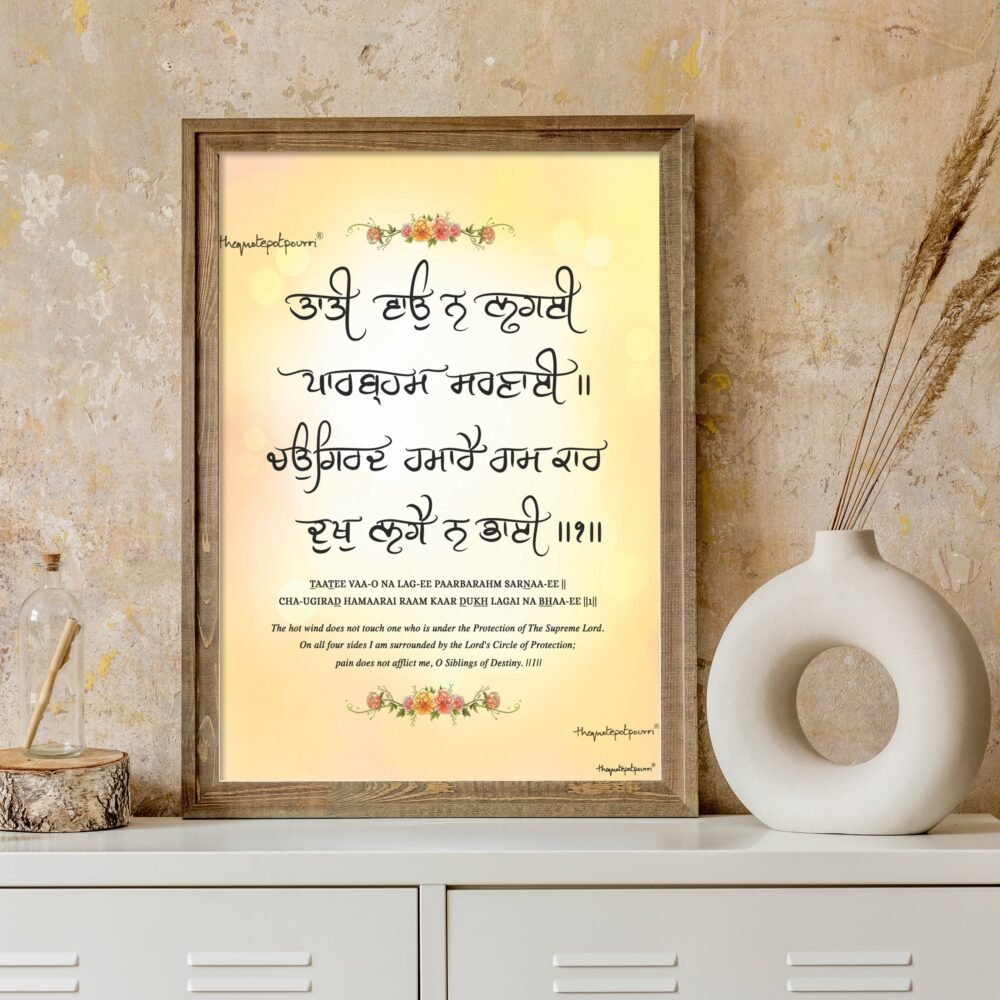 thequotepotpourri®
ਤਾਤੀ ਵਾਉ ਨ ਲਗਈ
ਪਾਰਬ੍ਰਹਮ ਸਰਣਾਈ ॥
ਚਉਗਿਰਦ ਹਮਾਰੈ ਰਾਮ ਕਾਰ
ਦੁਖੁ ਲਗੈ ਨ ਭਾਈ ॥੧॥
TAATEE VAA-O NA LAG-EE PAARBARAHM SARNAA-EE ||
CHA-UGIRAD HAMAARAI RAAM KAAR DUKH LAGAI NA BHAA-EE ||1||
The hot wind does not touch one who is under the Protection of The Supreme Lord.
On all four sides I am surrounded by the Lord's Circle of Protection;
pain does not afflict me, O Siblings of Destiny. ||1||
thequotepotpourri®
thequotepotpourri®